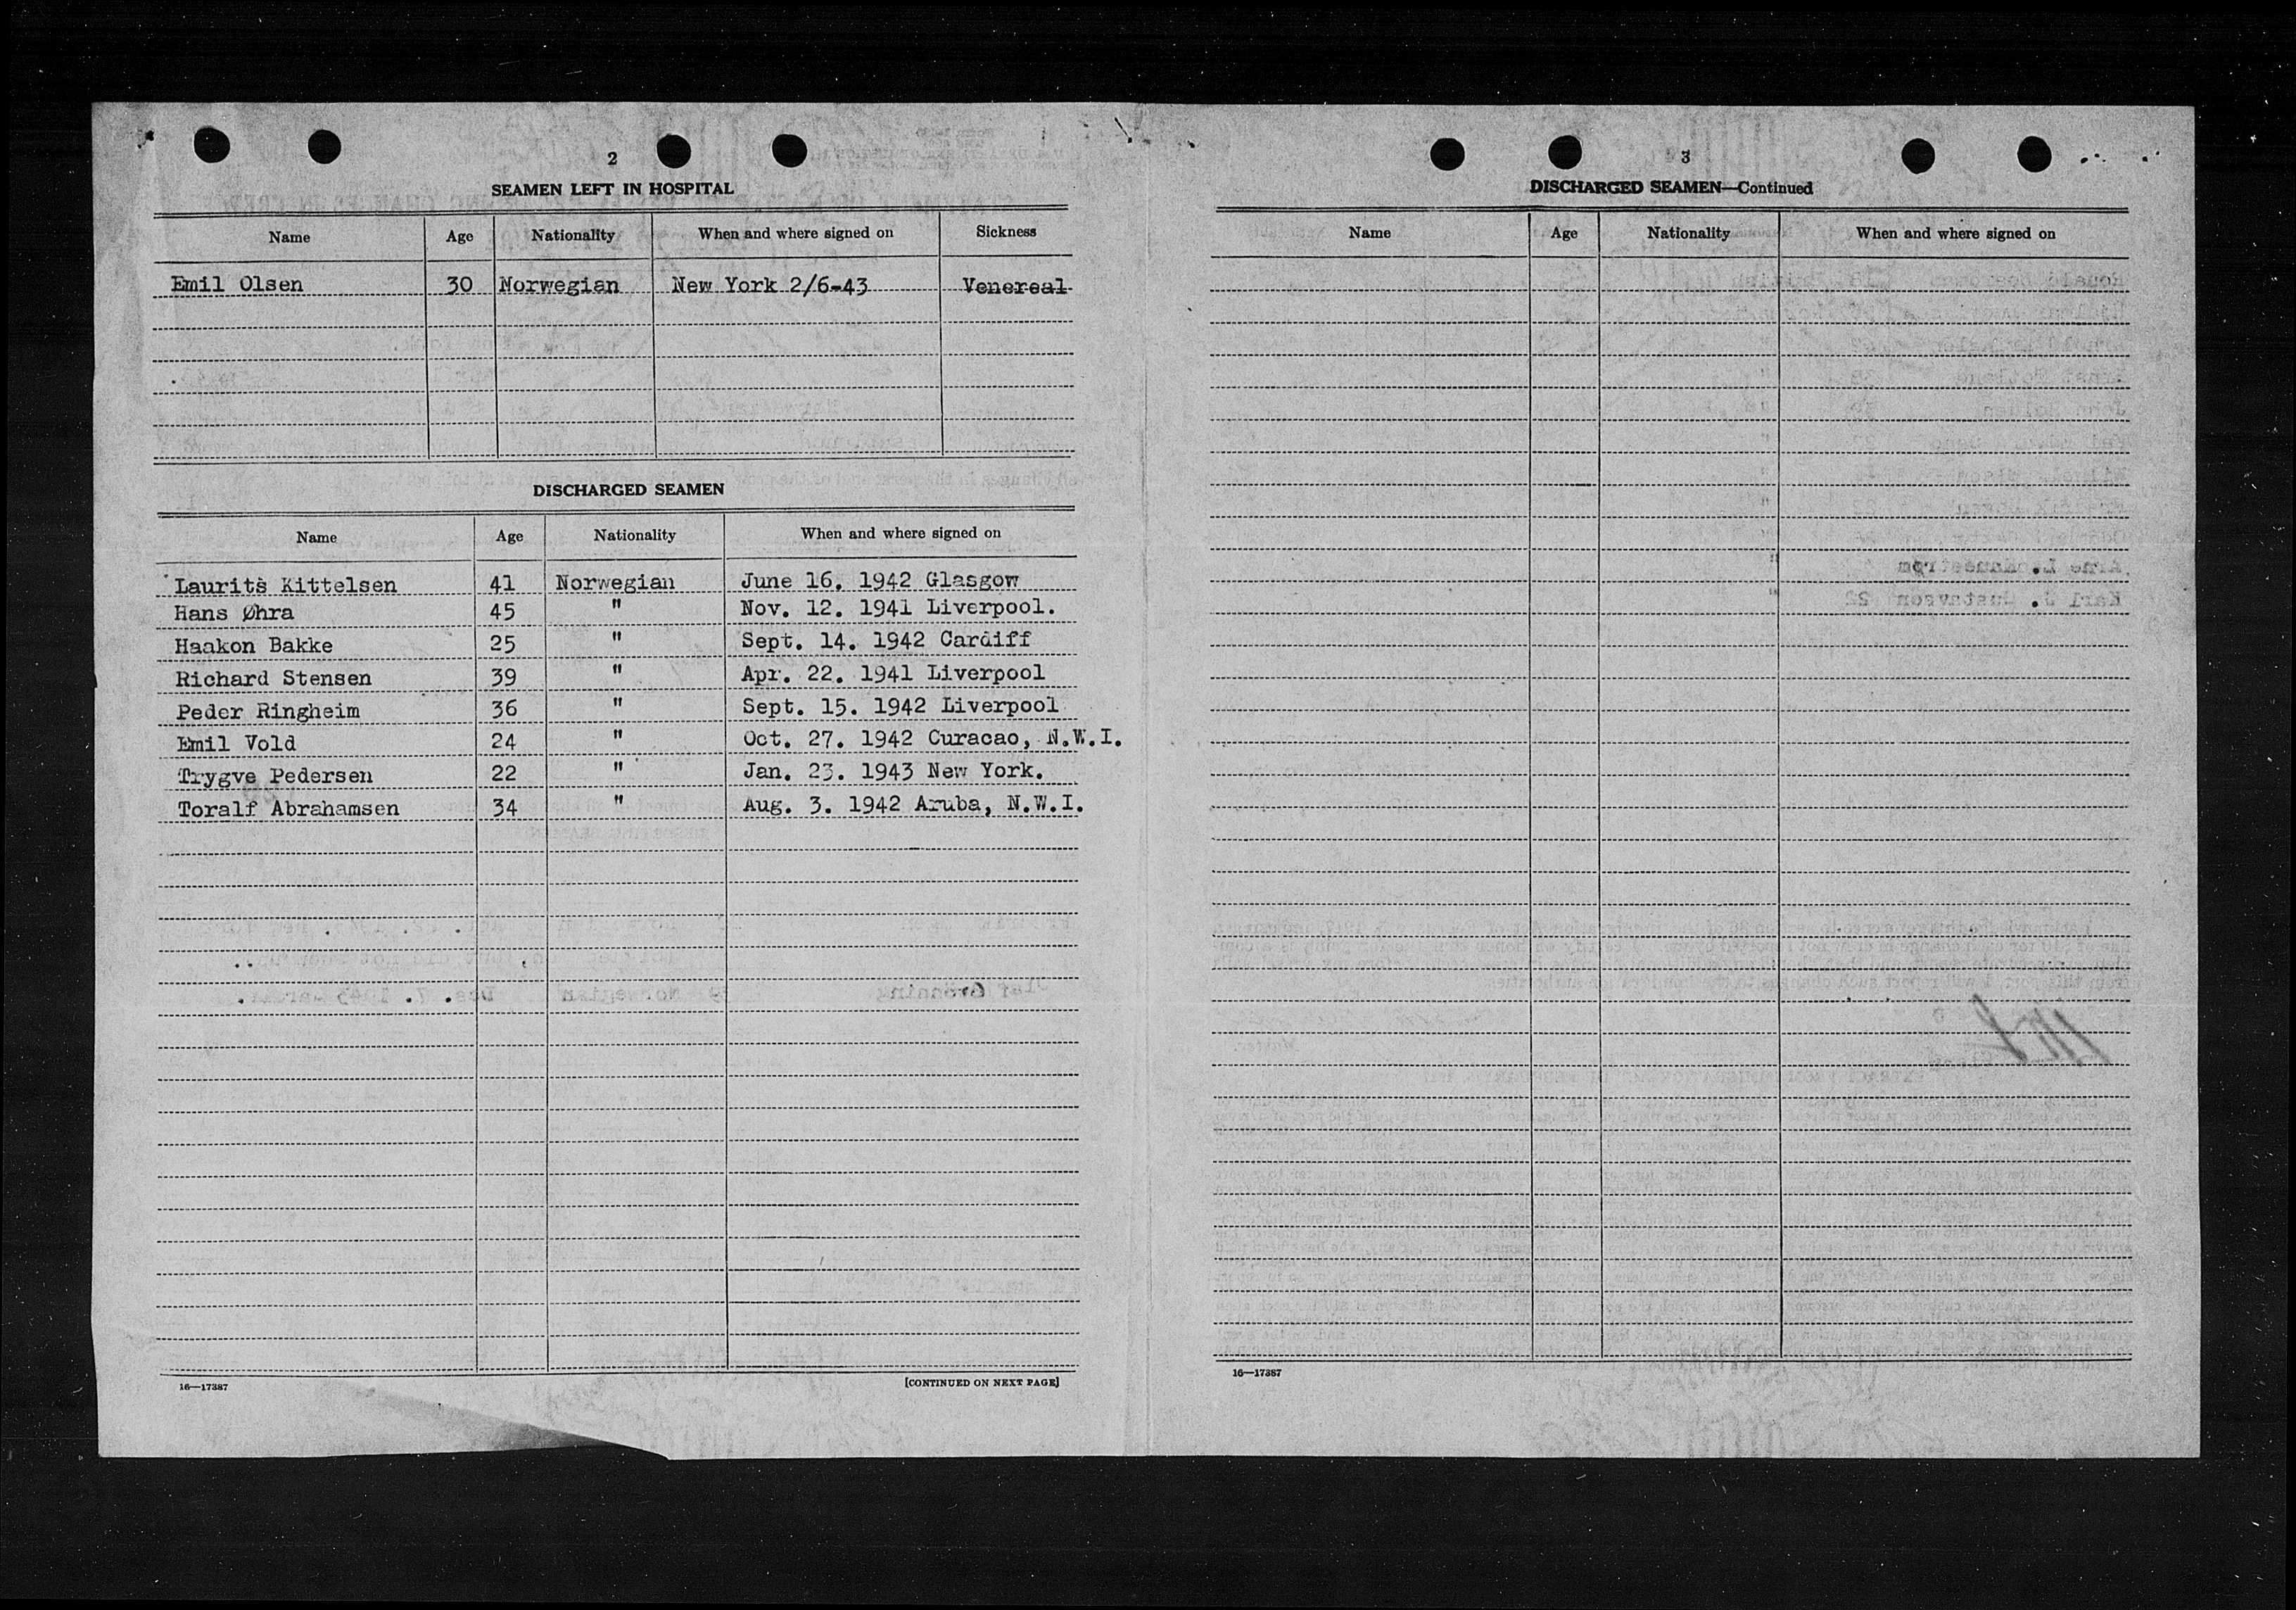 2
SEAMEN LEFT IN HOSPITAL
Name Age Nationality When and where signed on Sickness
Emil Olsen 30 Norwegian New York 2/6-43 Venereal
DISCHARGED SEAMEN
Name Age Nationality When and where signed on
Laurits Kittelsen 41 Norwegian June 16. 1942 Glasgow
Hans Øhra 45 " Nov. 12. 1941 Liverpool.
Haakon Bakke 25 " Sept. 14. 1942 Cardiff
Richard Stensen 39 " Apr. 22. 1941 Liverpool
Peder Ringheim 36 " Sept. 15. 1942 Liverpool
Emil Vold 24 " Oct. 27. 1942 Curacao, N.W.I.
Trygve Pedersen 22 " Jan. 23. 1943 New York.
Toralf Abrahamsen 34 " Aug. 3. 1942 Aruba, N.W.I.
16—17387 [CONTINUED ON NEXT PAGE]
3
DISCHARGED SEAMEN—Continued
Name Age Nationality When and where signed on
16—17387